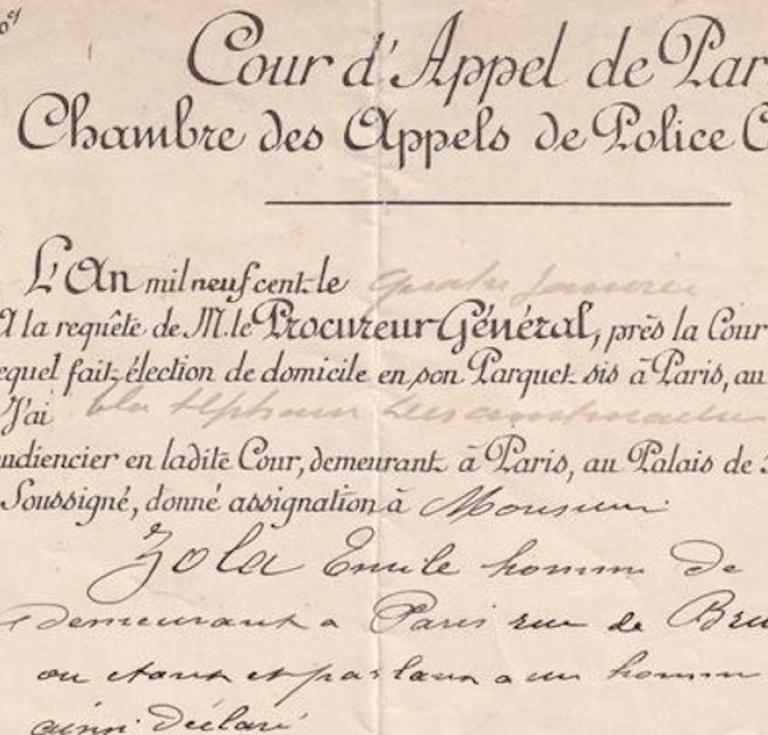 Cour d'Appel de Par
Chambre des Appels de Police C
L'An mil neuf cent le quatre Janvier
A la requête de M. le Procureur Général, près la Cour
equel fait élection de domicile en son Parquet sis à Paris, au
J'ai
udiencier en ladite Cour, demeurant à Paris, au Palais de
Soussigné, donné assignation à Monsieur
Zola Emile homme de
demeurant à Paris rue de Bru
ou étant et parlant a un homme
ainsi déclaré